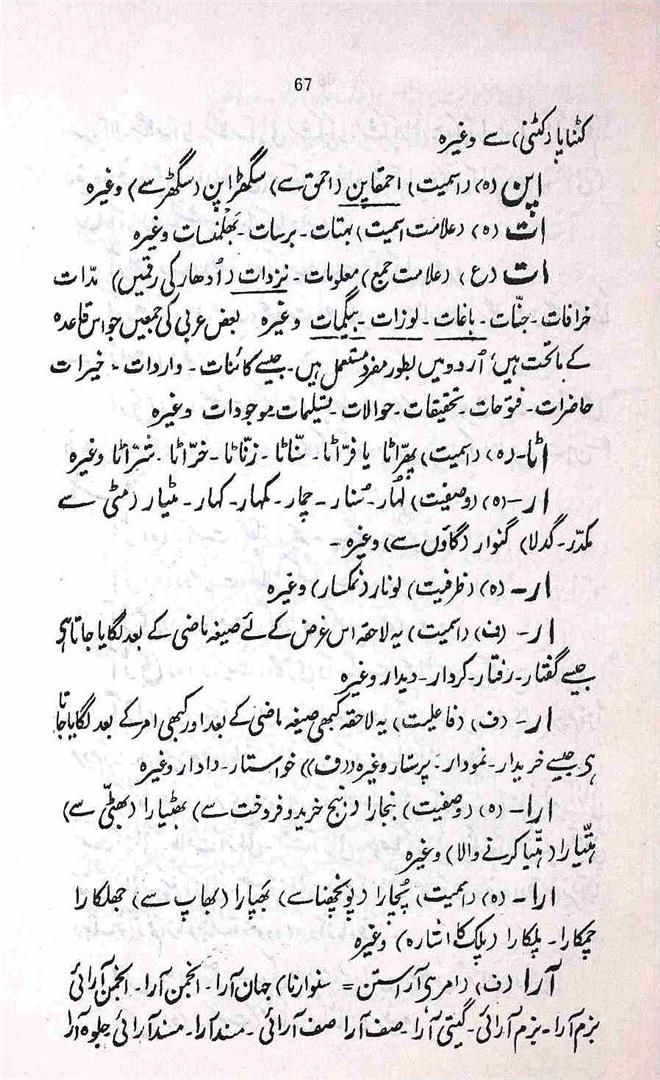 67
کٹناپا (کٹنی) سے وغیرہ
اپن (ہ) (اسمیت) احمقاپن (احمق سے) سگھڑاپن (سگھڑ سے) وغیرہ
ات (ہ) (علامت اسمیت) بہتات - برسات - بھلمنسات وغیرہ
ات (ع) (علامت جمع) معلومات - نزدات (اُدھار کی رقمیں) مدّات
خرافات - جنّات - باغات - لوزات - بیگمات وغیرہ بعض عربی کی جمعیں جو اس قاعدہ
کے ماتحت ہیں، اُردو میں بطور مفرد مستعمل ہیں - جیسے کائنات - واردات - خیرات
حاضرات - فتوحات - تحقیقات - حوالات - تسلیمات موجودات وغیرہ
اٹا - (ہ) (اسمیت) پھرّاٹا یا فرّاٹا - سنّاٹا - زنّاٹا - خرّاٹا - شرّاٹا وغیرہ
ار - (ہ) (وصفیت) لہار - سُنار - چمار - کمہار - کہار - مٹیار (مٹی سے
مکدّر - گدلا) گنوار (گاؤں سے) وغیرہ -
ار - (ہ) (ظرفیت) لونار (نمکسار) وغیرہ
ار - (ف) (اسمیت) یہ لاحقہ اس غرض کے لئے صیغہ ماضی کے بعد لگایا جاتا ہی
جیسے گفتار - رفتار - کردار - دیدار وغیرہ
ار - (ف) (فاعلیت) یہ لاحقہ کبھی صیغہ ماضی کے بعد اور کبھی امر کے بعد لگایا جاتا
ہی جیسے خریدار - نمودار - پرستار وغیرہ (ف)) خواستار - دادار وغیرہ
ارا - (ہ) (وصفیت) بنجارا (بنج خرید و فروخت سے) بھٹیارا (بھٹّی سے)
ہتّیارا (ہتّیا کرنے والا) وغیرہ
ارا - (ہ) (اسمیت) پُچارا (پونچھنا سے) بھپارا (بھاپ سے) جھلکارا
چمکارا - پلکارا (پلک کا اشارہ) وغیرہ
آرا (ف) (امر ی آراستن = سنوارنا) جہان آرا - انجمن آرا - انجمن آرائی
بزم آرا - بزم آرائی - گیتی آرا - صف آرا صف آرائی - مسند آرا - مسند آرائی جلوہ آرا